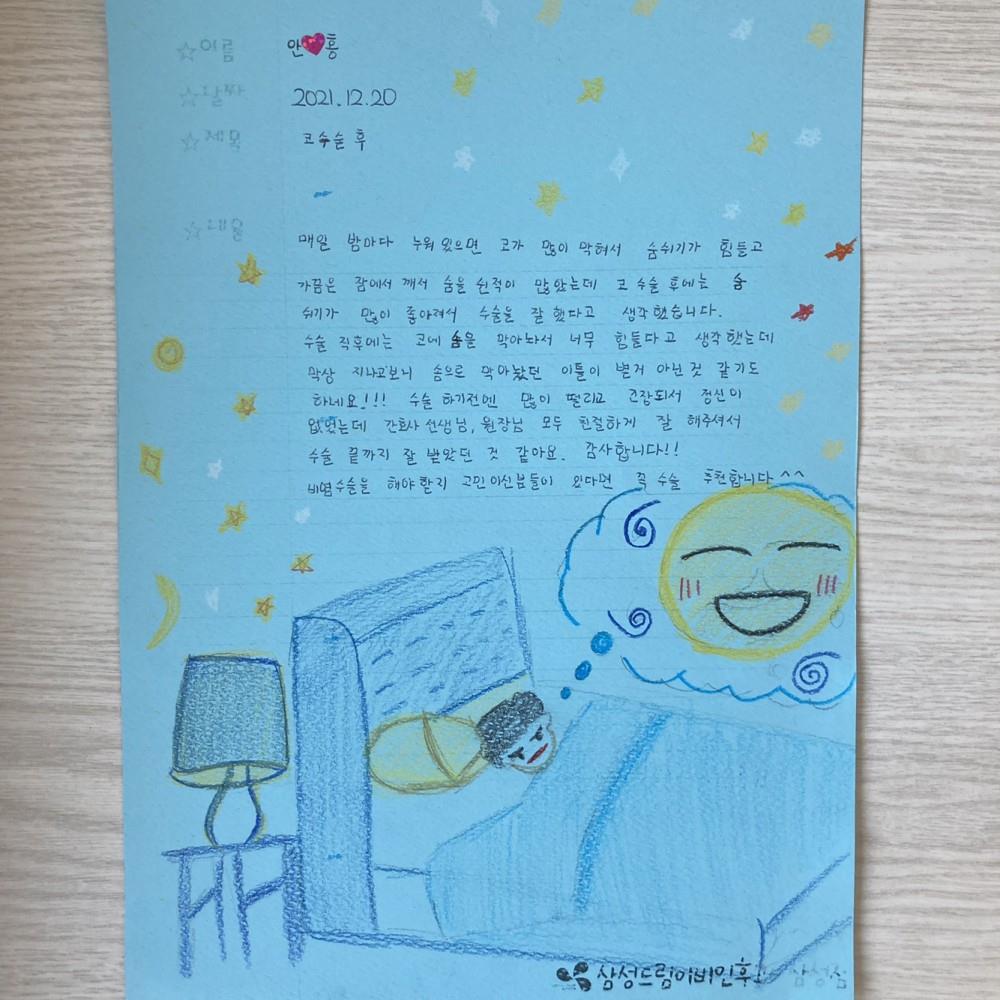 ☆이름
안❤️홍
☆날짜
2021.12.20
☆제목
코수술 후
☆내용
매일 밤마다 누워있으면 코가 많이 막혀서 숨쉬기가 힘들고
가끔은 잠에서 깨서 숨을 쉰적이 많았는데 코 수술 후에는 숨
쉬기가 많이 좋아져서 수술을 잘 했다고 생각했습니다.
수술 직후에는 코에 솜을 막아놔서 너무 힘들다고 생각했는데
막상 지나고보니 솜으로 막아놨던 이틀이 별거 아닌것 같기도
하네요!!! 수술 하기전엔 많이 떨리고 긴장되서 정신이
없었는데 간호사 선생님, 원장님 모두 친절하게 잘 해주셔서
수술 끝까지 잘 받았던 것 같아요. 감사합니다!!
비염수술을 해야할지 고민이신분들이 있다면 꼭 수술 추천합니다^^
삼성드림이비인후
삼성